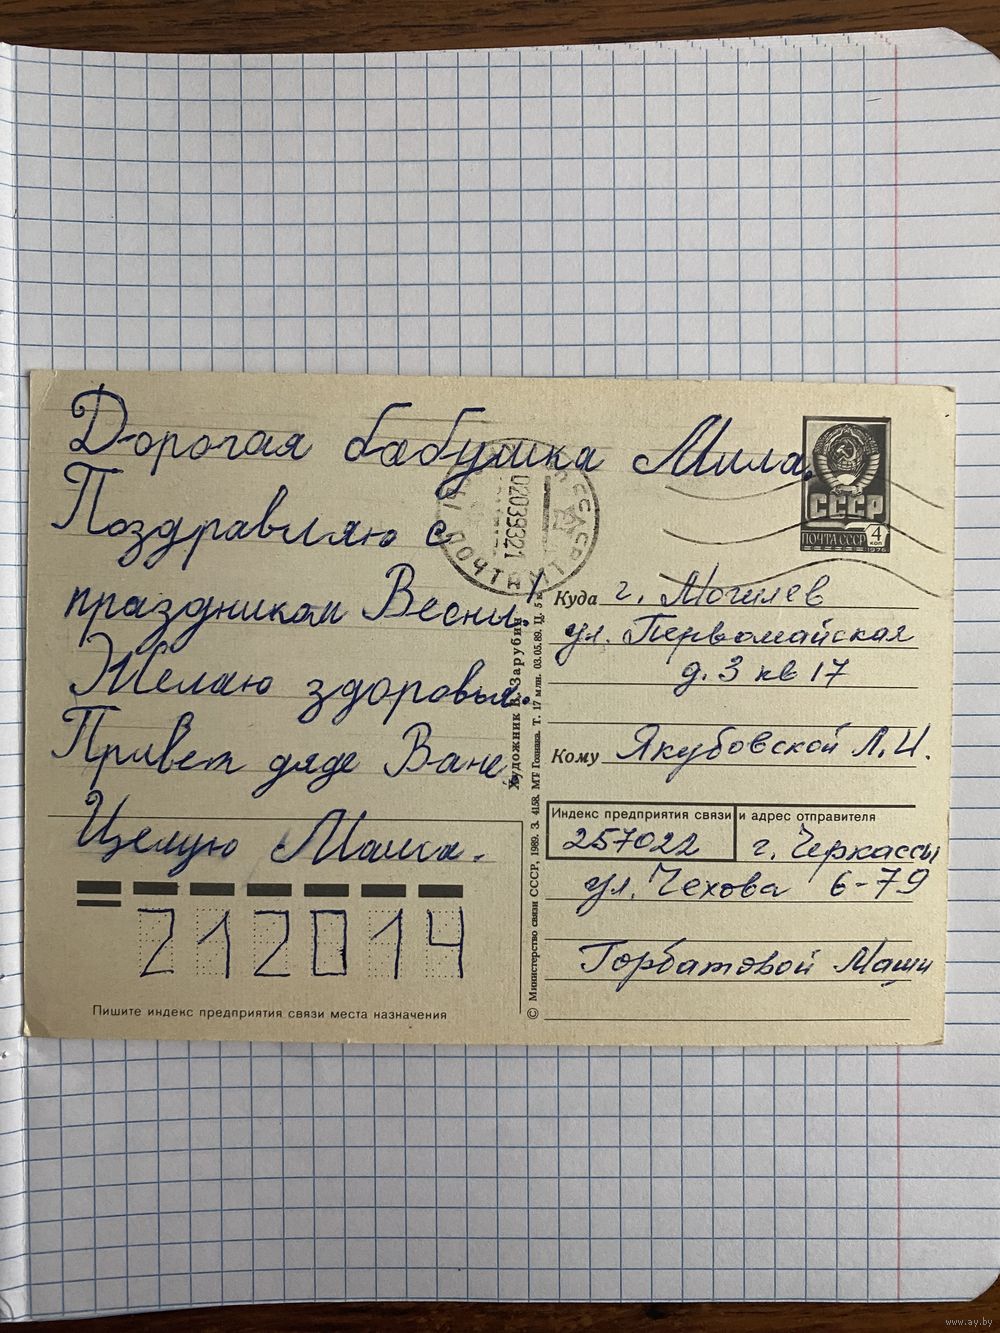 Дорогая бабушка Мила.
Поздравляю с
праздником Весны!
Желаю здоровья.
Привет дяде Ване.
Целую Маша.
212014
Пишите индекс предприятия связи места назначения
Художник В. Зарубин
© Министерство связи СССР, 1989. З. 4158. МТ Гознака. Т. 17 млн. 03.05.89. Ц. 5 к.
СССР
ПОЧТА СССР 4 КОП
1976
ПОЧТАМТ
Куда г. Могилев
ул. Первомайская
д. 3 кв 17
Кому Якубовской Л. И.
Индекс предприятия связи и адрес отправителя
257022 г. Черкассы
ул. Чехова 6-79
Горбатовой Маши
www.ay.by